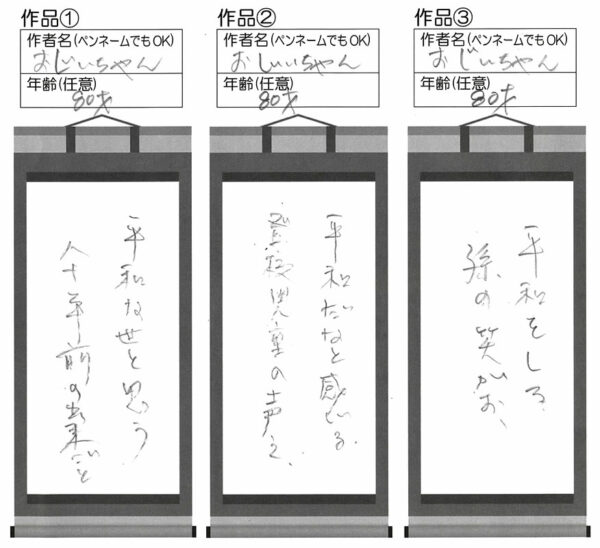 作品①
作者名(ペンネームでもOK)
おじいちゃん
年齢(任意)
80才
平和な世と思う
八十年前の出来ごと
作品②
作者名(ペンネームでもOK)
おじいちゃん
年齢(任意)
80才
平和だなと感じる
登校児童の声を、
作品③
作者名(ペンネームでもOK)
おじいちゃん
年齢(任意)
80才
平和をしる
孫の笑がお、